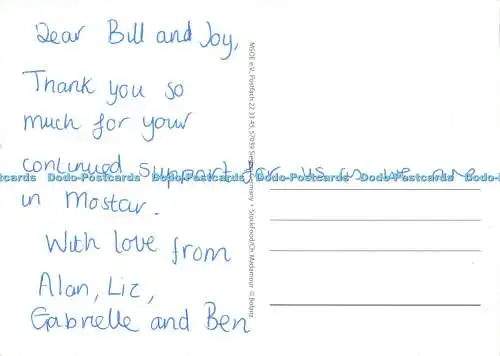 Dear Bill and Joy,
Thank you so
much for your
continued support for us as we are
in Mostar.
With love from
Alan, Liz,
Gabrielle and Ben
Dodo-Postcards Dodo-Postcards Dodo-Postcards Dodo-Postcards
MSOE e.V., Postfach 22 31 45, 57039
Germany